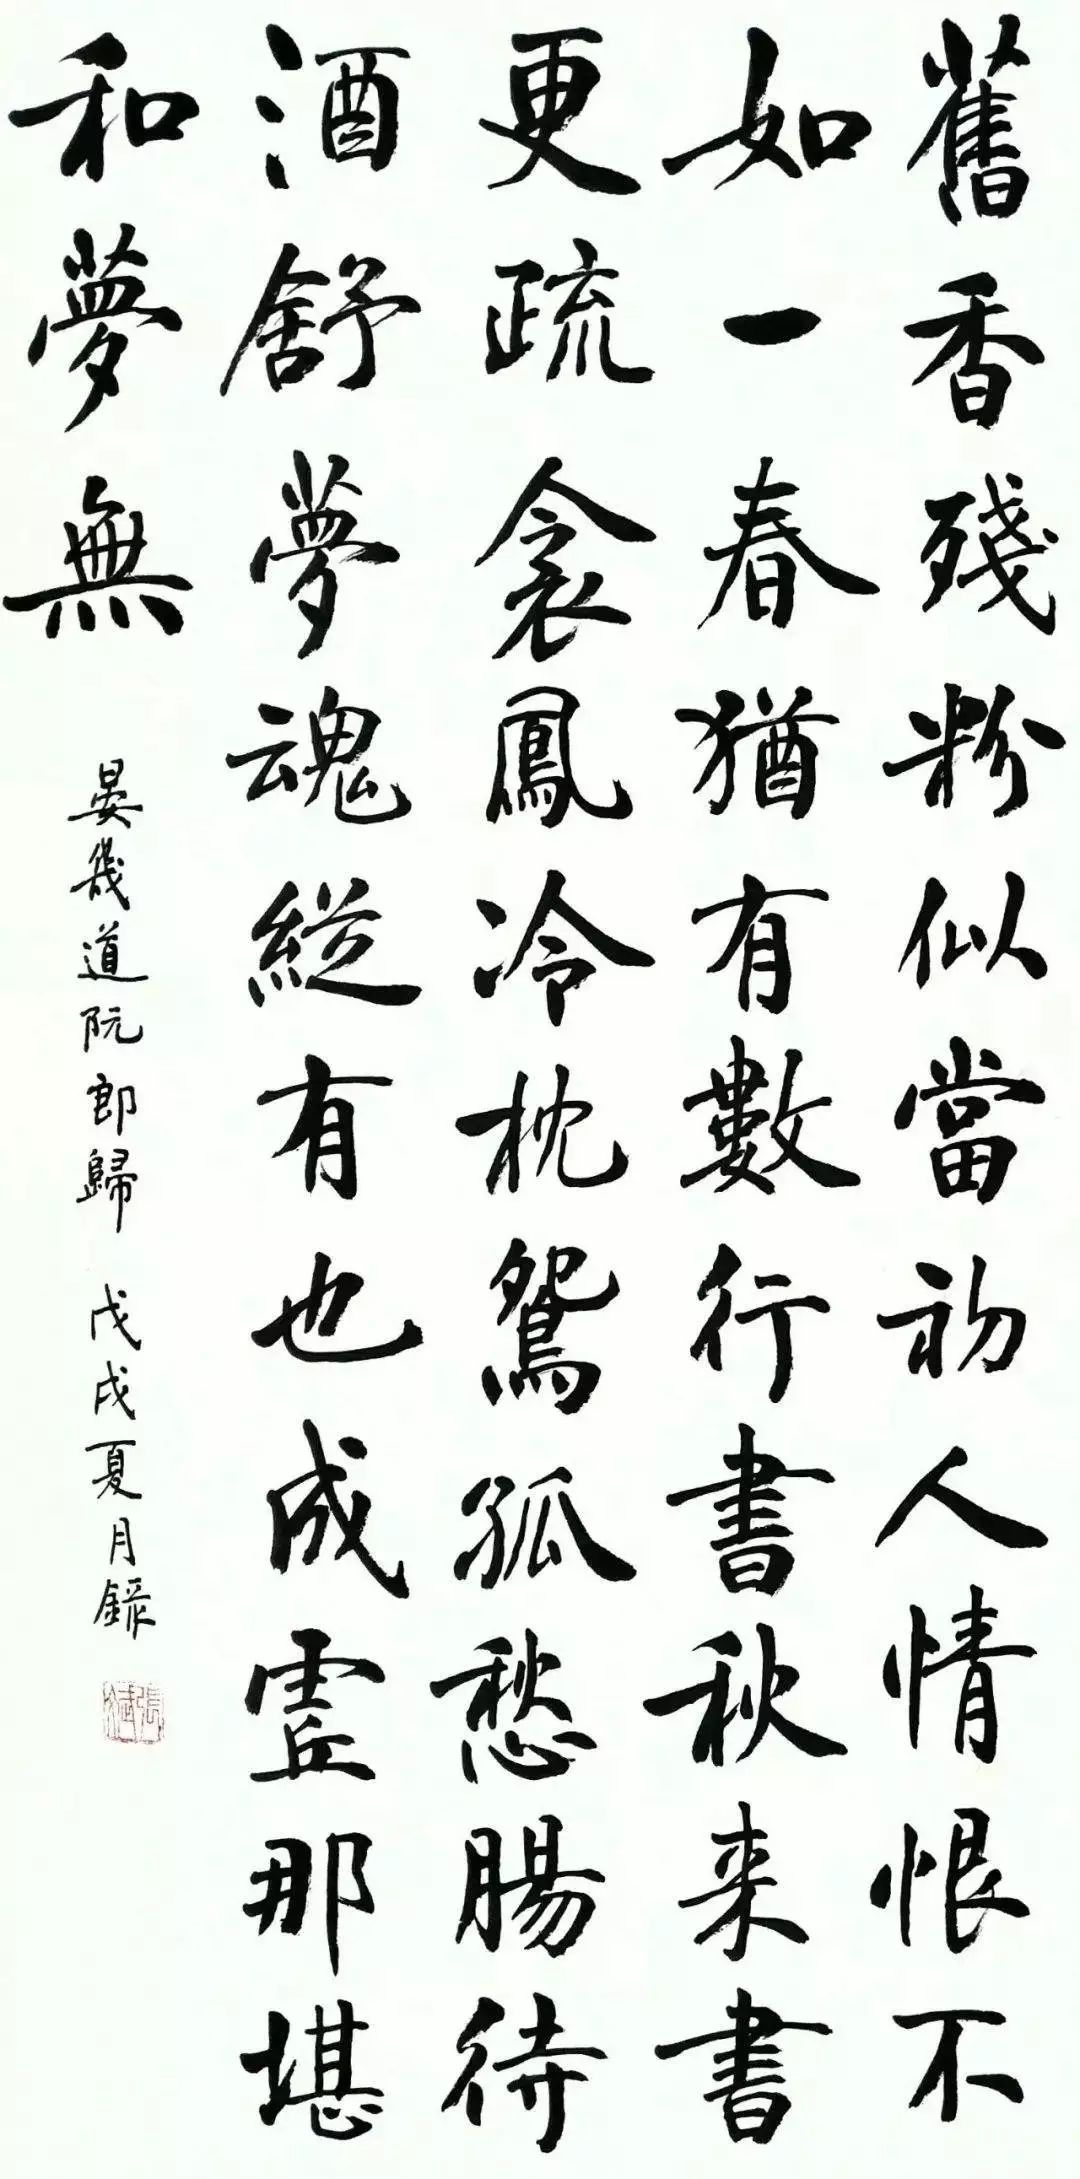 舊香殘粉似當初人情恨不
如一春猶有數行書秋来書
更疏衾鳳冷枕鴛孤愁腸待
酒舒夢魂縦有也成虛那堪
和夢無
晏幾道阮郎歸 戊戌夏月録